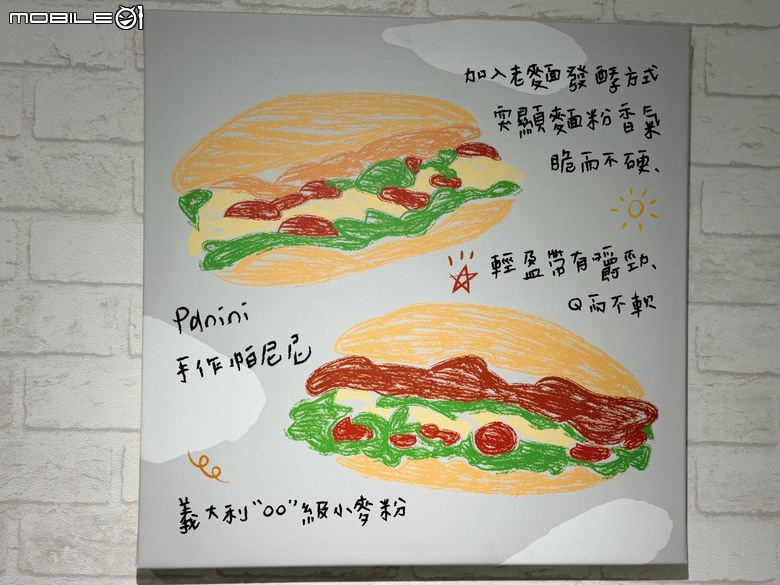 MOBILE01
加入老麵面發酵方式
突顯麵粉香氣
脆而不硬、
輕盈帶有嚼勁、
Q而不軟
Panini
手作帕尼尼
義大利"00"級小麥粉